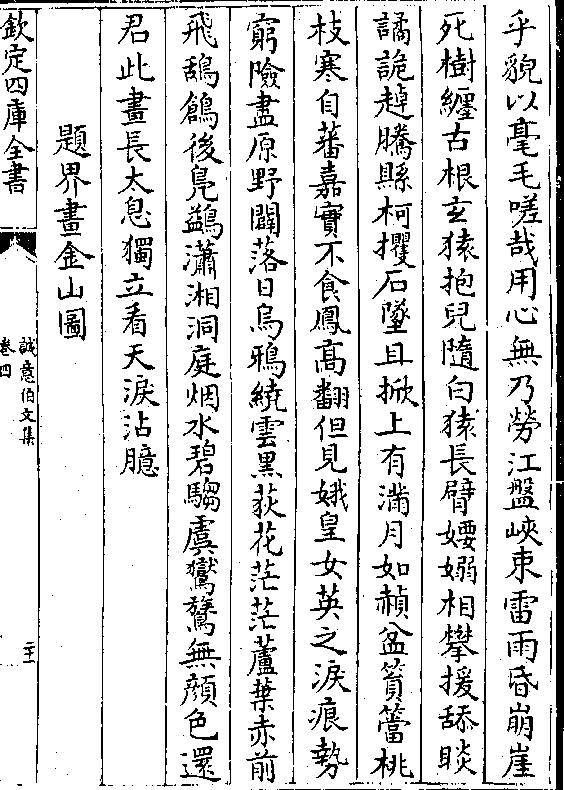 乎貌以毫毛嗟哉用心無乃勞江盤峽束雷雨昏崩崖
死樹纒古根玄猿抱兒隨白猿長臂㛐嫋相攀援舔睒
譎詭趠騰縣柯攫石墜且掀上有滿月如赬盆篔簹桃
枝寒自蕃嘉實不食鳳高翻但見娥皇女英之淚痕勢
窮險盡原野闢落日烏鴉繞雲黑荻花茫茫蘆葉赤前
飛鴰鶬後鳧鷁瀟湘洞庭烟水碧騶虞鸑鷟無顔色還
君此畫長太息獨立看天淚沾臆
題界畫金山圖
欽定四庫全書
誠意伯文集
卷四
二十一